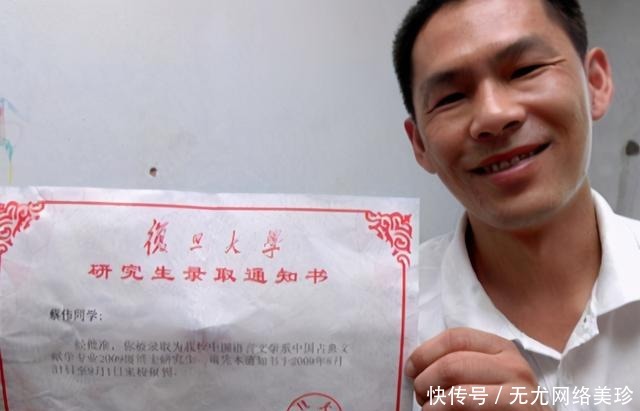 復旦大學
研究生录取通知书
蔡伟同学：
经批准，你被录取为我校中国语言文学系中国古典文
献学专业2009级博士研究生，请凭本通知于2009年8月
31日至9月1日来校报到。
快传号/无尤网络美珍